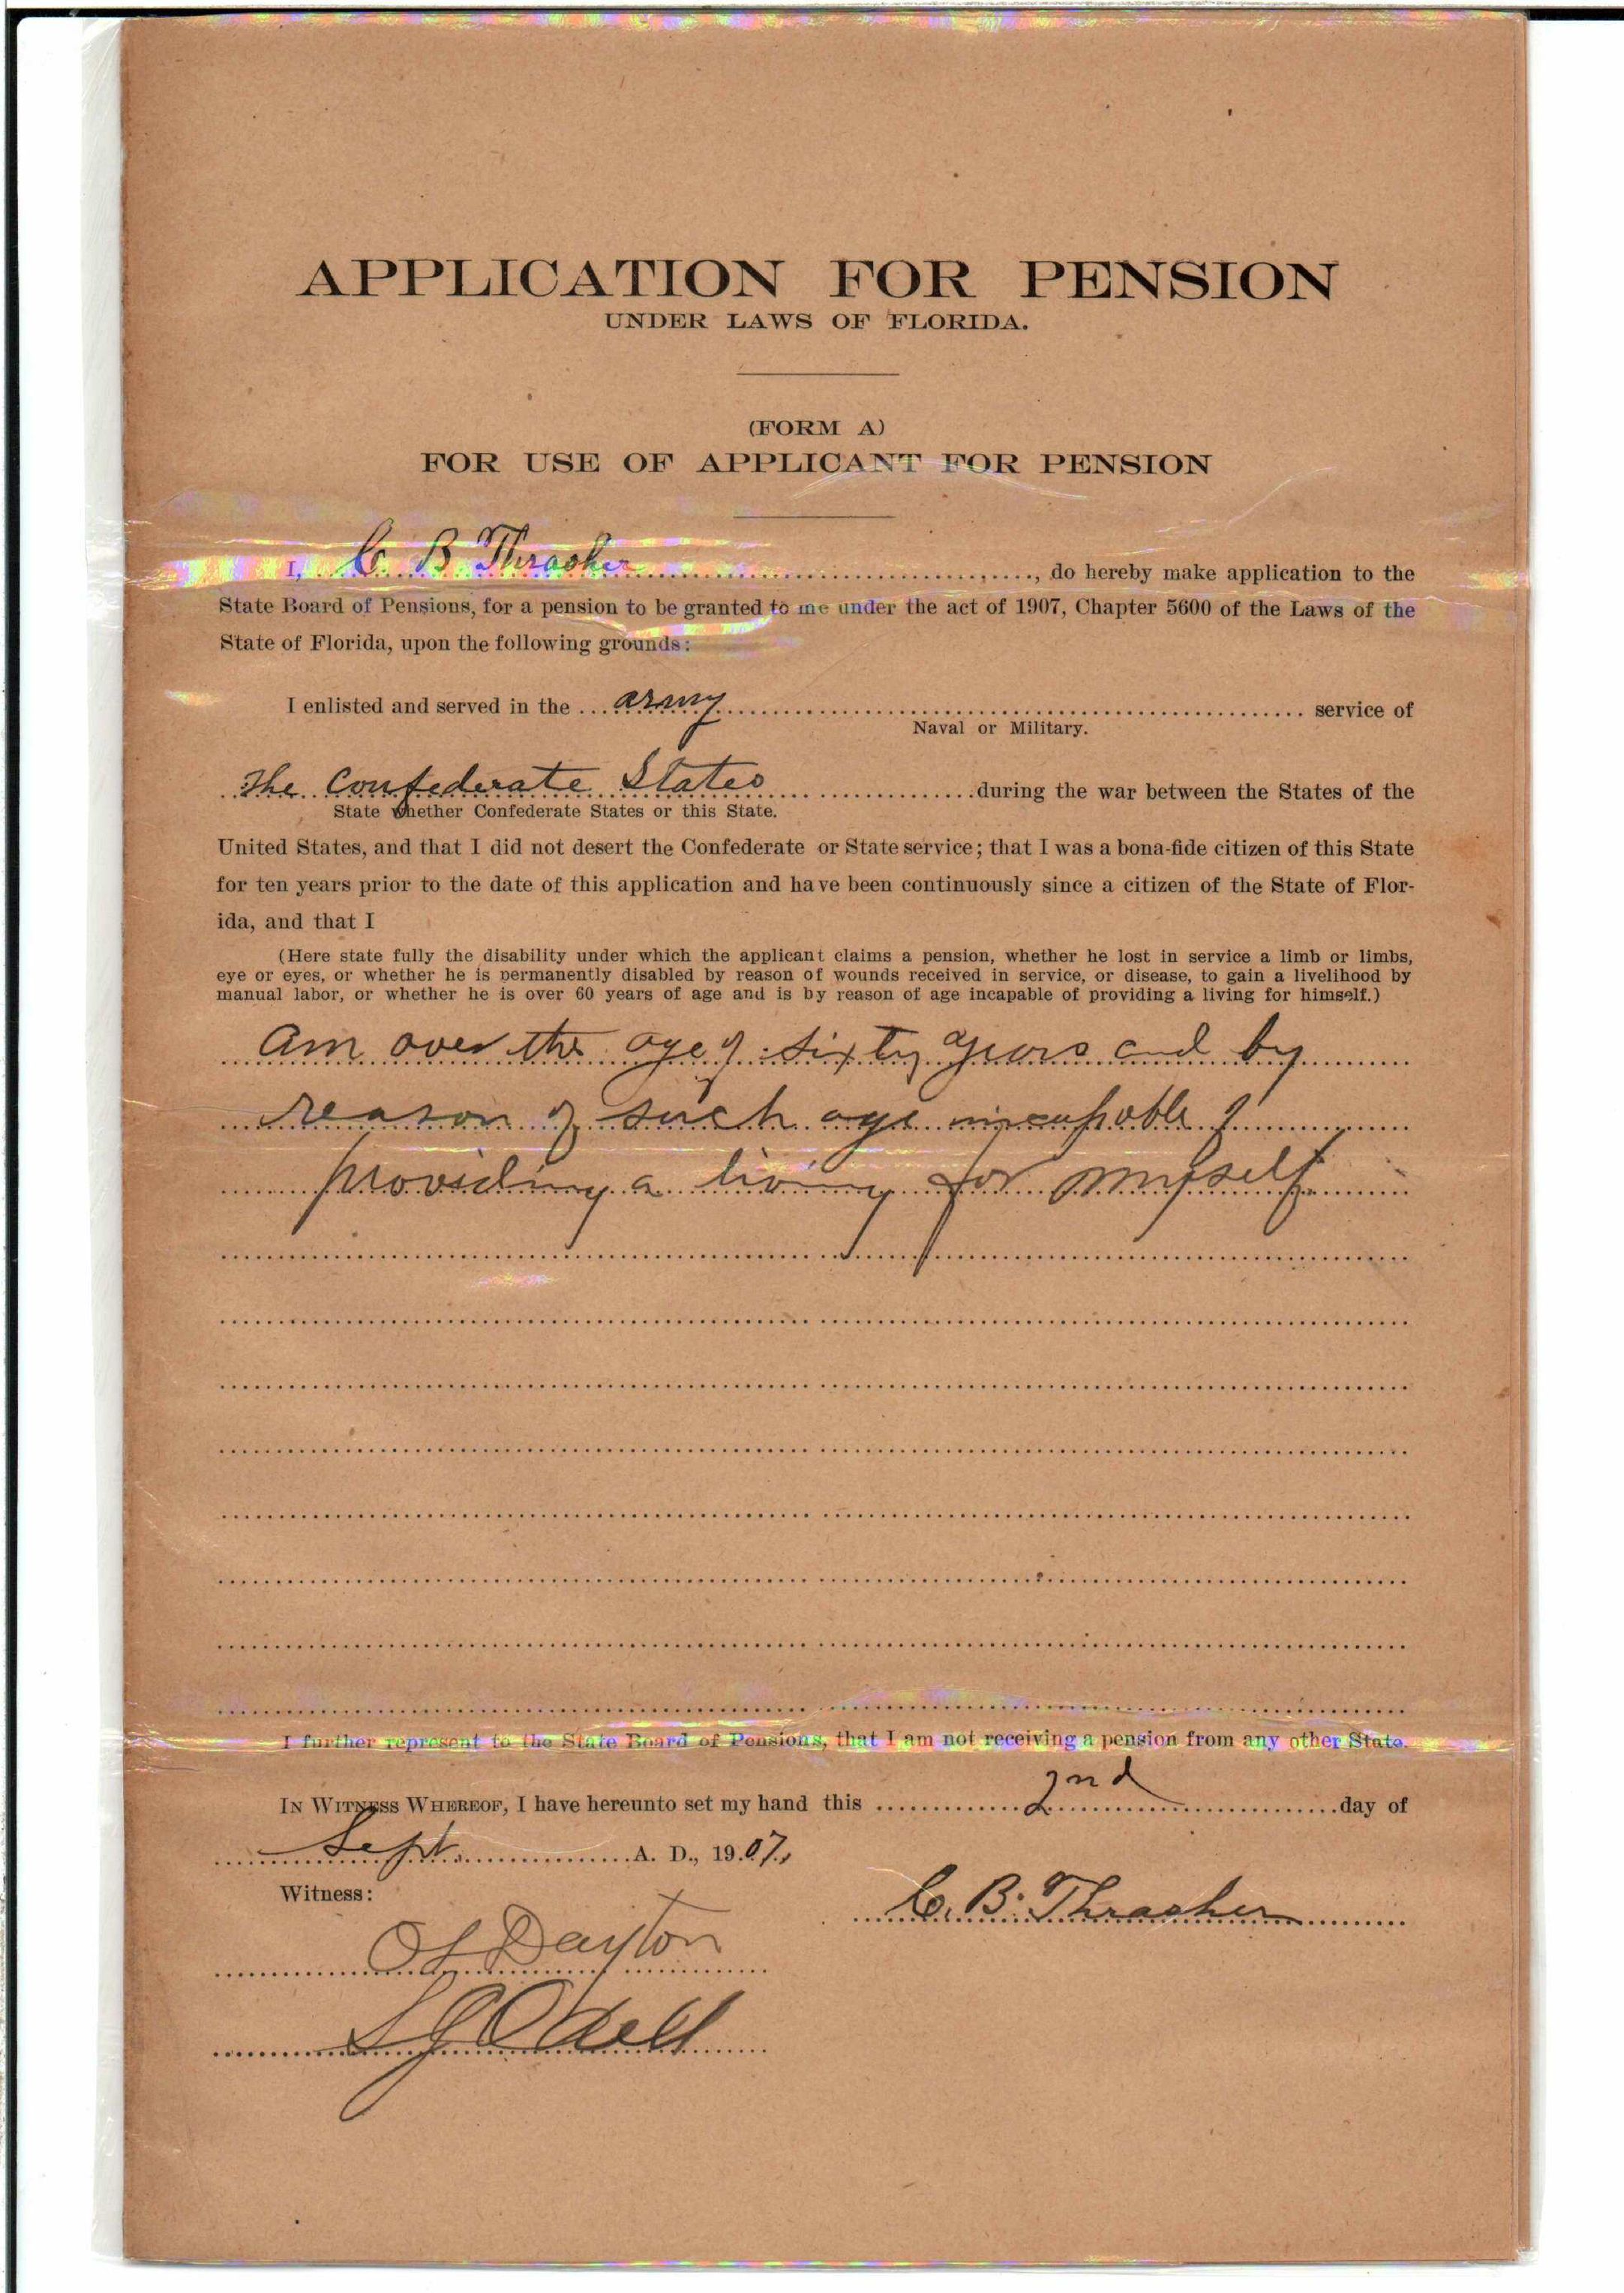 APPLICATION FOR PENSION
UNDER LAWS OF FLORIDA.
(FORM A)
FOR USE OF APPLICANT FOR PENSION
I, C. B Thrasher, do hereby make application to the
State Board of Pensions, for a pension to be granted to me under the act of 1907, Chapter 5600 of the Laws of the
State of Florida, upon the following grounds:
I enlisted and served in the army service of
Naval or Military.
The Confederate States during the war between the States of the
State whether Confederate States or this State.
United States, and that I did not desert the Confederate or State service; that I was a bona-fide citizen of this State
for ten years prior to the date of this application and have been continuously since a citizen of the State of Flor-
ida, and that I
(Here state fully the disability under which the applicant claims a pension, whether he lost in service a limb or limbs,
eye or eyes, or whether he is permanently disabled by reason of wounds received in service, or disease, to gain a livelihood by
manual labor, or whether he is over 60 years of age and is by reason of age incapable of providing a living for himself.)
am over the age of sixty years and by
reason of such age incapable of
providing a living for myself
I further represent to the State Board of Pensions, that I am not receiving a pension from any other State.
IN WITNESS WHEREOF, I have hereunto set my hand this 2nd day of
Sept. A. D., 1907.
Witness:
C. B. Thrasher
Dayton
Odell